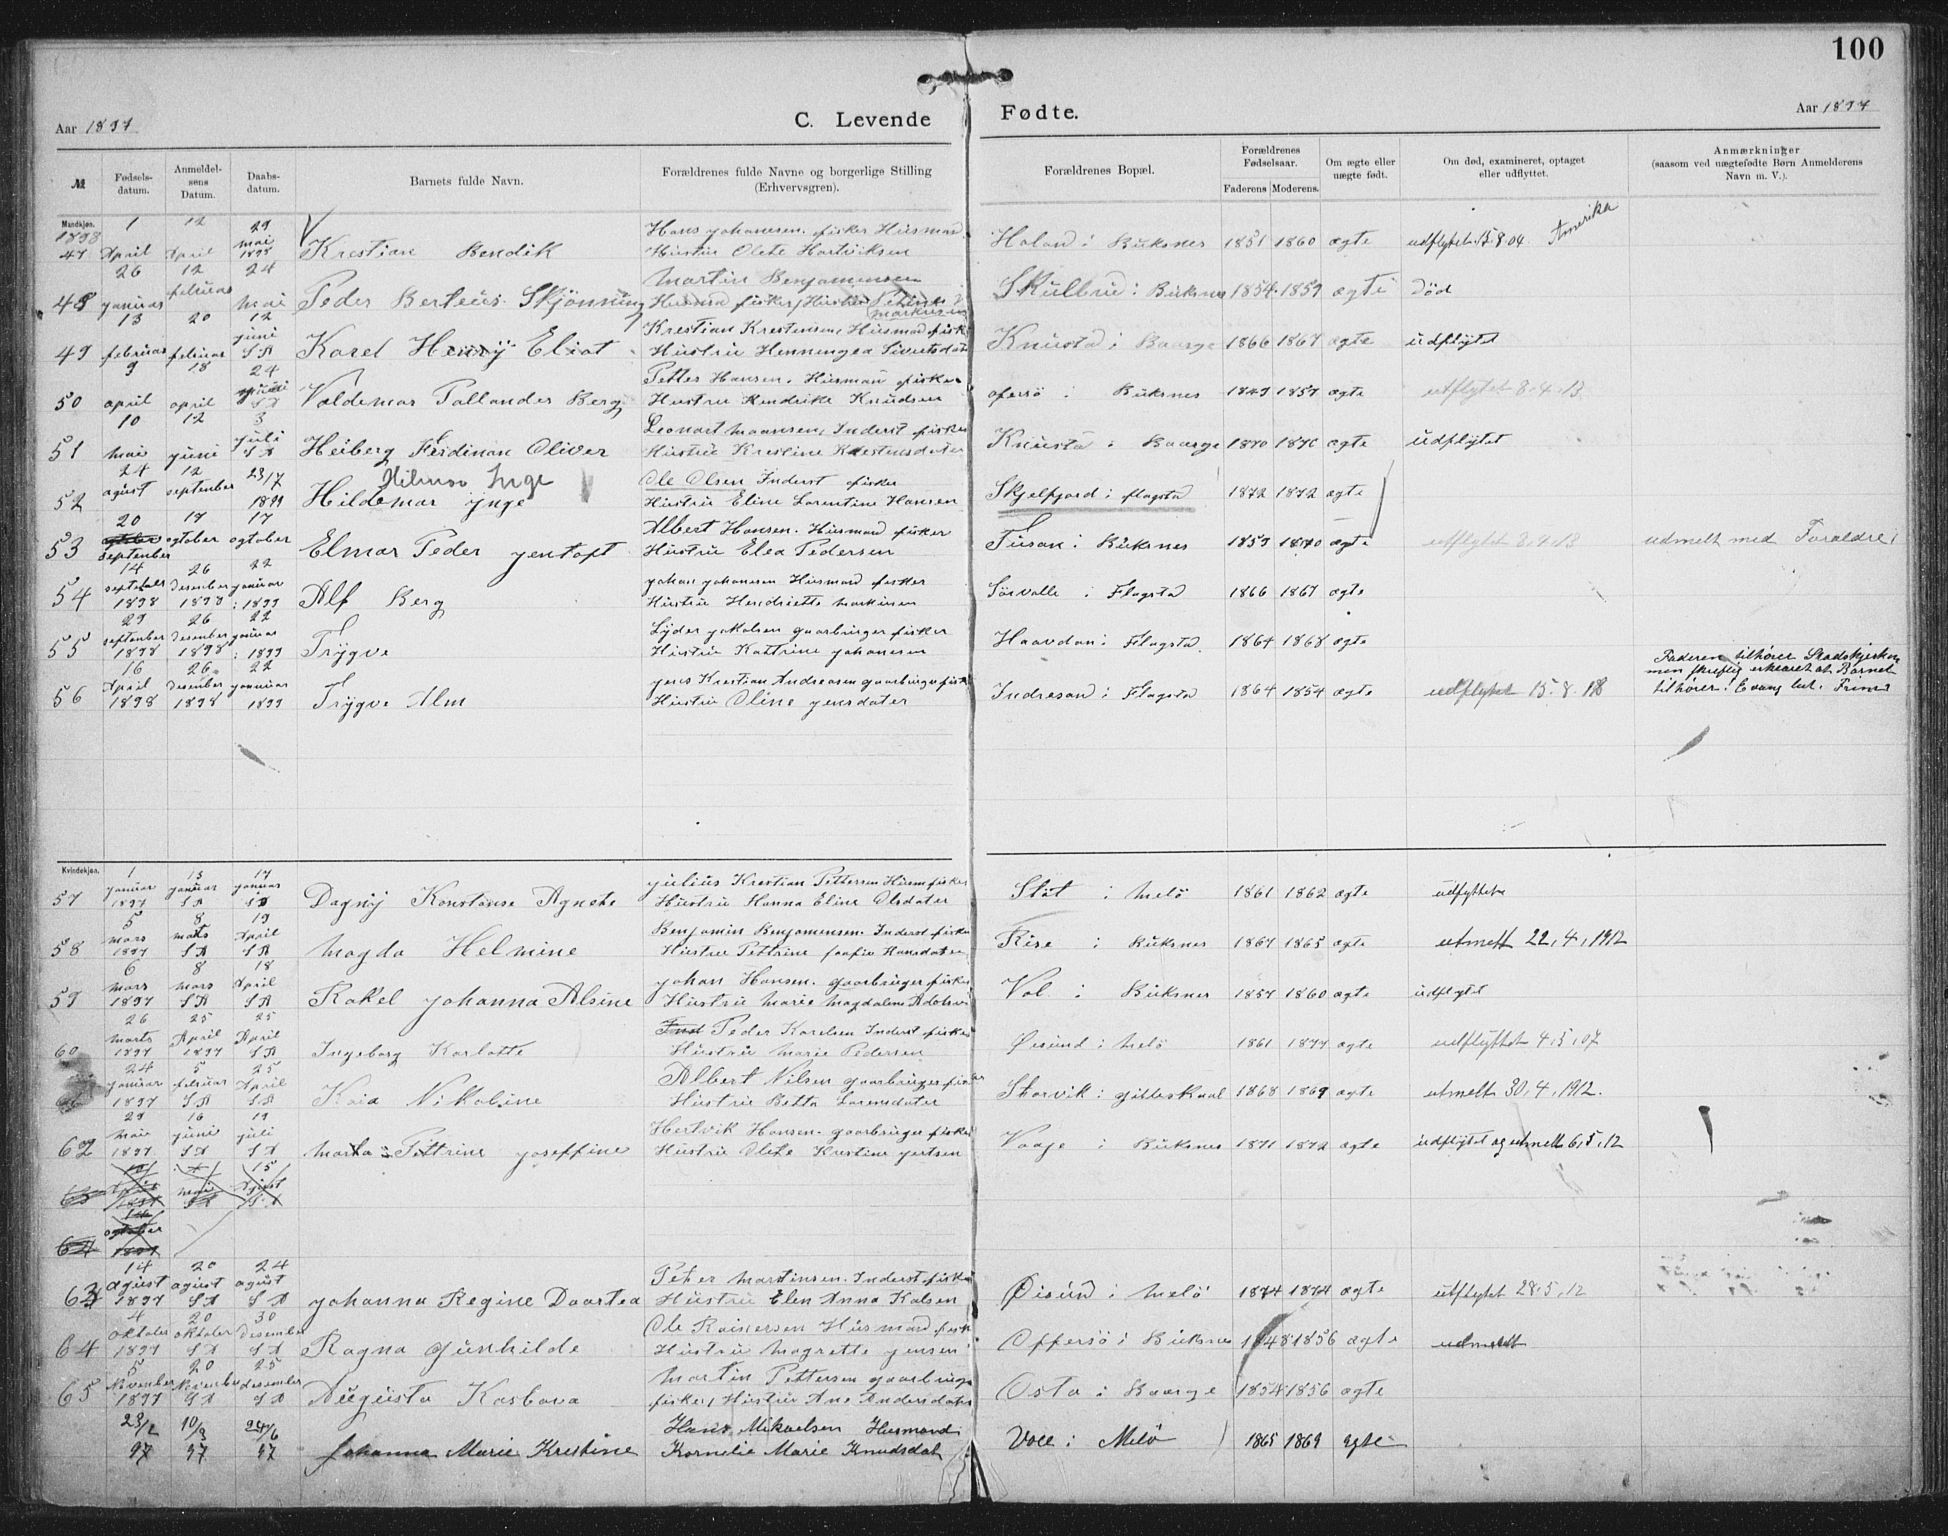 100
Aar 1897
C. Levende Fødte.
Aar 1897
№ Fødselsdatum. Anmeldelsens Datum. Daabsdatum. Barnets fulde Navn. Forældrenes fulde Navne og borgerlige Stilling (Erhvervsgren). Forældrenes Bopæl. Forældrenes Fødselsaar. Faderens Moderens. Om ægte eller uægte født. Om død, examineret, optaget eller udflyttet. Anmærkninger (saasom ved uægtefødte Børn Anmelderens Navn m. V.).
Mandkjøn.
1898
1 12 29 Hans Johansen fisker Husmand Amerika
47 April April mai 1898 Krestian Bendik Hustru Olete Hartviksen Holand i Buksnes 1851 1860 ægte udflyttet 15.8.04
26 12 24 Martin Benjaminsen
48 januar februar mai Peder Berteus Skjønning Husmand fisker, Hustru Skulbru i Buksnes 1854 1859 ægte Død
13 20 12 Krestian Krestensen, Husmand fisker
49 februar februar juni S A Karel Henry Eliot Hustru Henningea Knusta i Baarge 1866 1867 ægte udflytet
9 18 24 Petter Hansen. Husman fisker
50 april april juni S A Valdemar Tallander Berg Hustru Hendrike Knudsen ofersö i Buksnes 1849 1857 ægte utflytet 8.4.13
10 12 3 Leonart Maansen, Inderst fisker
51 mai juni juli S A Heiberg Ferdinan Oliver Hustru Krestine Knusta i Baarge 1870 1870 ægte udflytet
24 12 23/7 Inge Ole Olsen Inderst fisker
52 agust september 1899 Hildemar ynge Hustru Eline Lorentine Hansen Skjelfjord i flagsta 1872 1872 ægte
20 17 17 Albert Hansen. Husmand fisker
53 september ogtober ogtober Elmar Peder yentoft Hustru Elea Pedersen Tusan i Buksnes 1859 1870 ægte utflytet 8.4.13 udmelt med Foraldre
14 26 22 Johan Johansen Husmand fisker
54 september 1898 Desember 1898 januar 1899 Alf Berg Hustru Hendriette Markusen Sörvalle i Flagsta 1866 1867 ægte
29 26 22 Lyder Jakobsen gaarbruger fisker
55 september 1898 Desember 1898 januar 1899 Trygve Hustru Kattrine Johansen Haavdan i Flagsta 1864 1868 ægte
16 26 22 Jens Krestian Andreasen gaarbruger fisk
56 April 1898 Desember 1898 januar 1899 Trygve Alm Hustru Oline Jensdater Indresan i Flagsta 1864 1854 ægte udflyttet 15.8.18
Faderen tilhører Stadskjerken
men skriftlig erkearet at Barnet
tilhører: Evang lut. Frime
Kvindekjøn.
1 13 17 Julius Krestian Pettersen Husm fisker
57 januar 1897 januar S A januar S A Dagny Konstanse Agnete Hustru Hanna Eline Olsdater Stöt i Melö 1861 1862 ægte udflyttet
5 8 19 Benjamin Benjamensen. Inderst fisker
58 mars 1897 mars S A April S A Magda Helmine Hustru Pettrine Hansdater Rise i Buksnes 1867 1865 ægte utmelt 22,4,1912
6 8 18 Johan Hansen. gaarbruger fisker
59 mars 1897 mars S A April S A Rakel Johanna Alsine Hustru Marie Magdalene Val i Buksnes 1857 1860 ægte udflytet
26 25 25 Peder Karelsen Inderst fisker
60 marts 1897 April 1897 April S A Ingeborg Karlotte Hustru Marie Pedersen Øisund i Melö 1861 1877 ægte udflyttet 4,5,07
24 5 25 Albert Nilsen gaarbruger fisker
januar 1897 februar S A April S A Kaia Nikoline Hustru Betta Lorensdater Storvik i gilleskaal 1868 1869 ægte utmelt 30,4,1912.
29 16 19 Hertvik Hansen. gaarbruger fisker
62 mai 1897 juni S A juli S A Marta Pettrine Joseffine Hustru Olete Krestine Jertsen Vaage i Buksnes 1871 1872 ægte udflytet og utmelt 6,5,12
65 15
64 ogtober 1897
14 20 24 Peter Martinsen. Inderst fisker
63 agust 1897 agust S A agust S A Johanna Regine Daartea Hustru Elen Anna Kalsen Øisund i Melö 1874 1874 ægte utflytet 28.5,12
4 20 30 Ole Reinersen Husmand fisk
64 oktober 1897 oktober S A Desember S A Ragna Gunhilde Hustru Magrette Jensen Offersö i Buksnes 1848 1856 ægte udmeldt
5 20 25 Martin Pettersen gaarbruger
65 November 1897 November S A desember S A Augusta Kasbara fisker, Hustru Ane Andersdater Osta i Baarge 1854 1856 ægte
23/2 97 10/3 97 24/6 97 Johanna Marie Krestine Hans Mikaelsen Husmand Kornelie Marie Knudsdat Voll i Melö 1865 1869 ægte